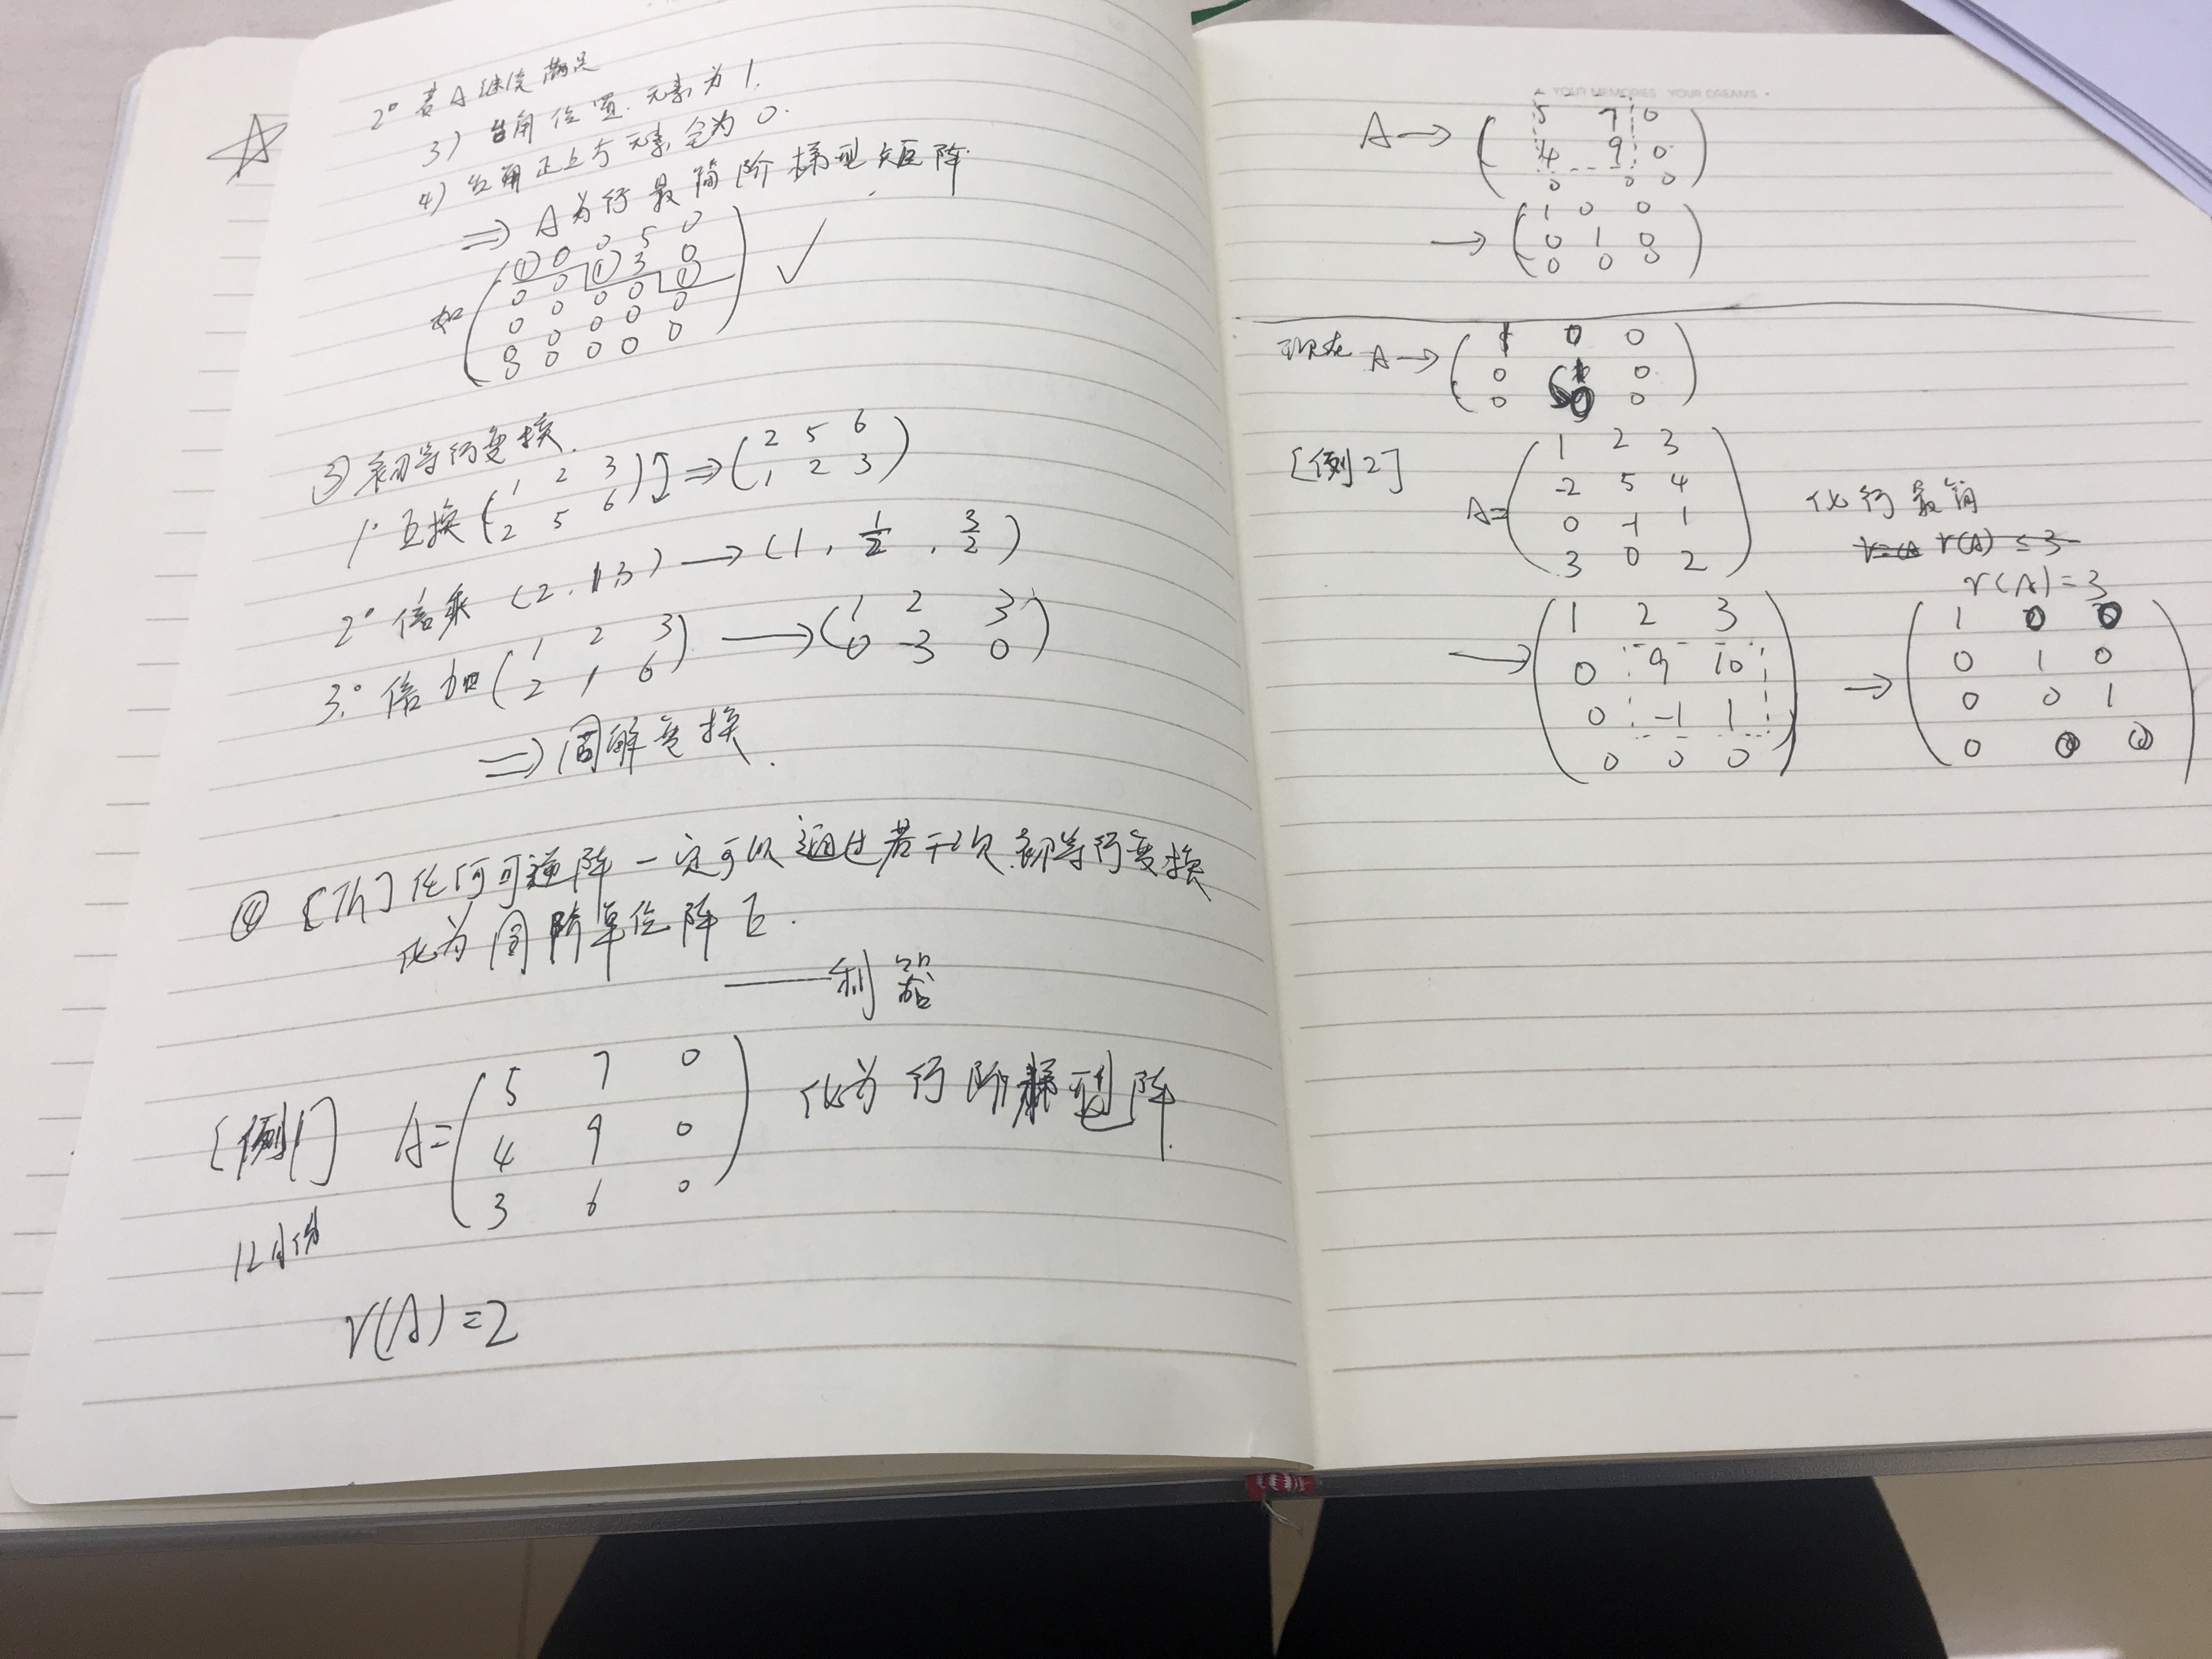 2° 若A继续满足
3) 台角位置元素为1.
4) 台角正上方元素全为0.
⇒ A为行最简阶梯型矩阵.
如
1 0 0 5 0
0 0 1 3 0
0 0 0 0 1
0 0 0 0 0
0 0 0 0 0
✓
③ 初等行变换.
1° 互换 (1 2 3
2 5 6) ⇒ (2 5 6
1 2 3)
2° 倍乘 (2, 1, 3) → (1, 1/2, 3/2)
3° 倍加 (1 2 3
2 1 6) → (1 2 3
0 -3 0)
⇒ 同解变换.
④ [Th] 任何可逆阵一定可以通过若干次初等行变换
化为同阶单位阵E.
——利器
[例1] A= (5 7 0
4 9 0
3 6 0) 化为行阶梯型阵.
r(A)=2
YOUR MEMORIES YOUR DREAMS
A → (5 7 0
4 9 0
0 0 0)
→ (1 0 0
0 1 0
0 0 0)
现在 A → (1 0 0
0 1 0
0 0 0)
[例2]
A= (1 2 3
-2 5 4
0 -1 1
3 0 2)
化行最简
r(A) ≤ 3
r(A)=3
→ (1 2 3
0 9 10
0 -1 1
0 0 0)
→ (1 0 0
0 1 0
0 0 1
0 0 0)